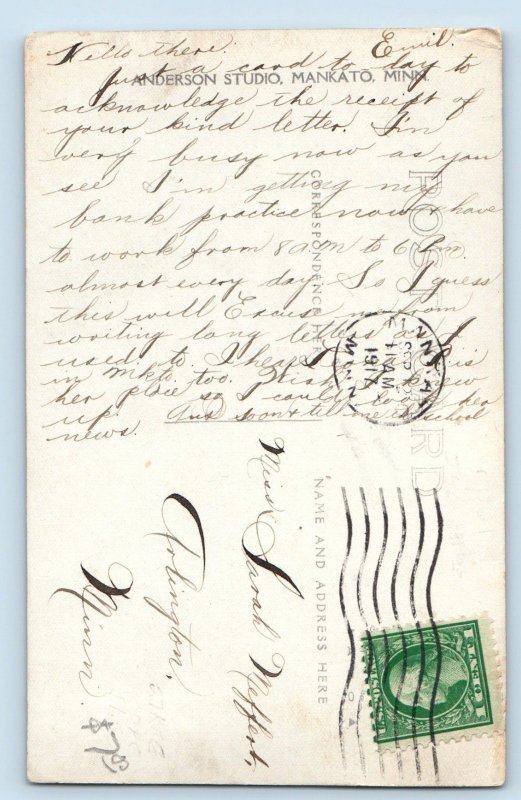 Hello there. Emil.
Just a card to day to
ANDERSON STUDIO, MANKATO, MINN.
acknowledge the receipt of
your kind letter. I'm
very busy now as you
see I'm getting my
bank practice now & have
to work from 8 a.m to 6 P.m.
almost every day. So I guess
this will Excuse me from
writing long letters as I
used to. I hear is
in Mkto too. Wish I knew
her place so I could look her
up. Ans soon & tell me school
news.
POST CARD
CORRESPONDENCE HERE
NAME AND ADDRESS HERE
MINN.
SEP
11 AM
1917
Miss Sarah Neffert,
Arlington,
Minn.
1 CENT 1
$7.00